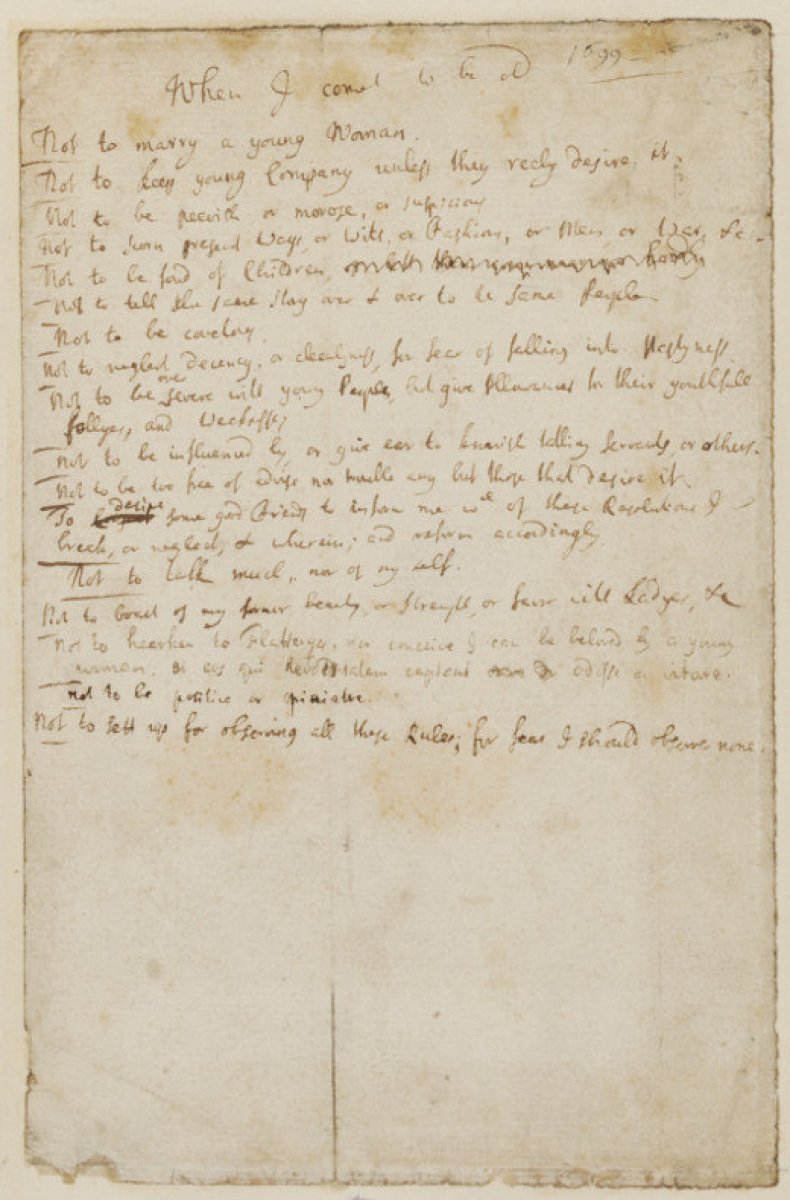 When I come to be old 1699
Not to marry a young Woman.
Not to keep young Company unless they reely desire it.
Not to be peevish or morose, or suspicious
Not to scorn present Ways, or Wits, or Fashions, or Men, or War, &c.
Not to be fond of Children,
Not to tell the same story over & over to the same People.
Not to be covetous.
Not to neglect decency, or cleenlyness, for fear of falling into Nastyness.
Not to be over severe with young People, but give Allowances for their youthfull
follyes, and Weeknesses
Not to be influenced by, or give ear to knavish tatling Servants, or others.
Not to be too free of advise nor trouble any but those that desire it.
To desire some good Friends to inform me wch of these Resolutions I
break, or neglect, & wherein; and reform accordingly.
Not to talk much, nor of my self.
Not to boast of my former beauty, or strength, or favor with Ladyes, &c
Not to hearken to Flatteryes, nor conceive I can be beloved by a young
woman. et eos qui hereditatem captant odisse ac vitare.
Not to be positive or opiniatre.
Not to sett up for observing all these Rules, for fear I should observe none.